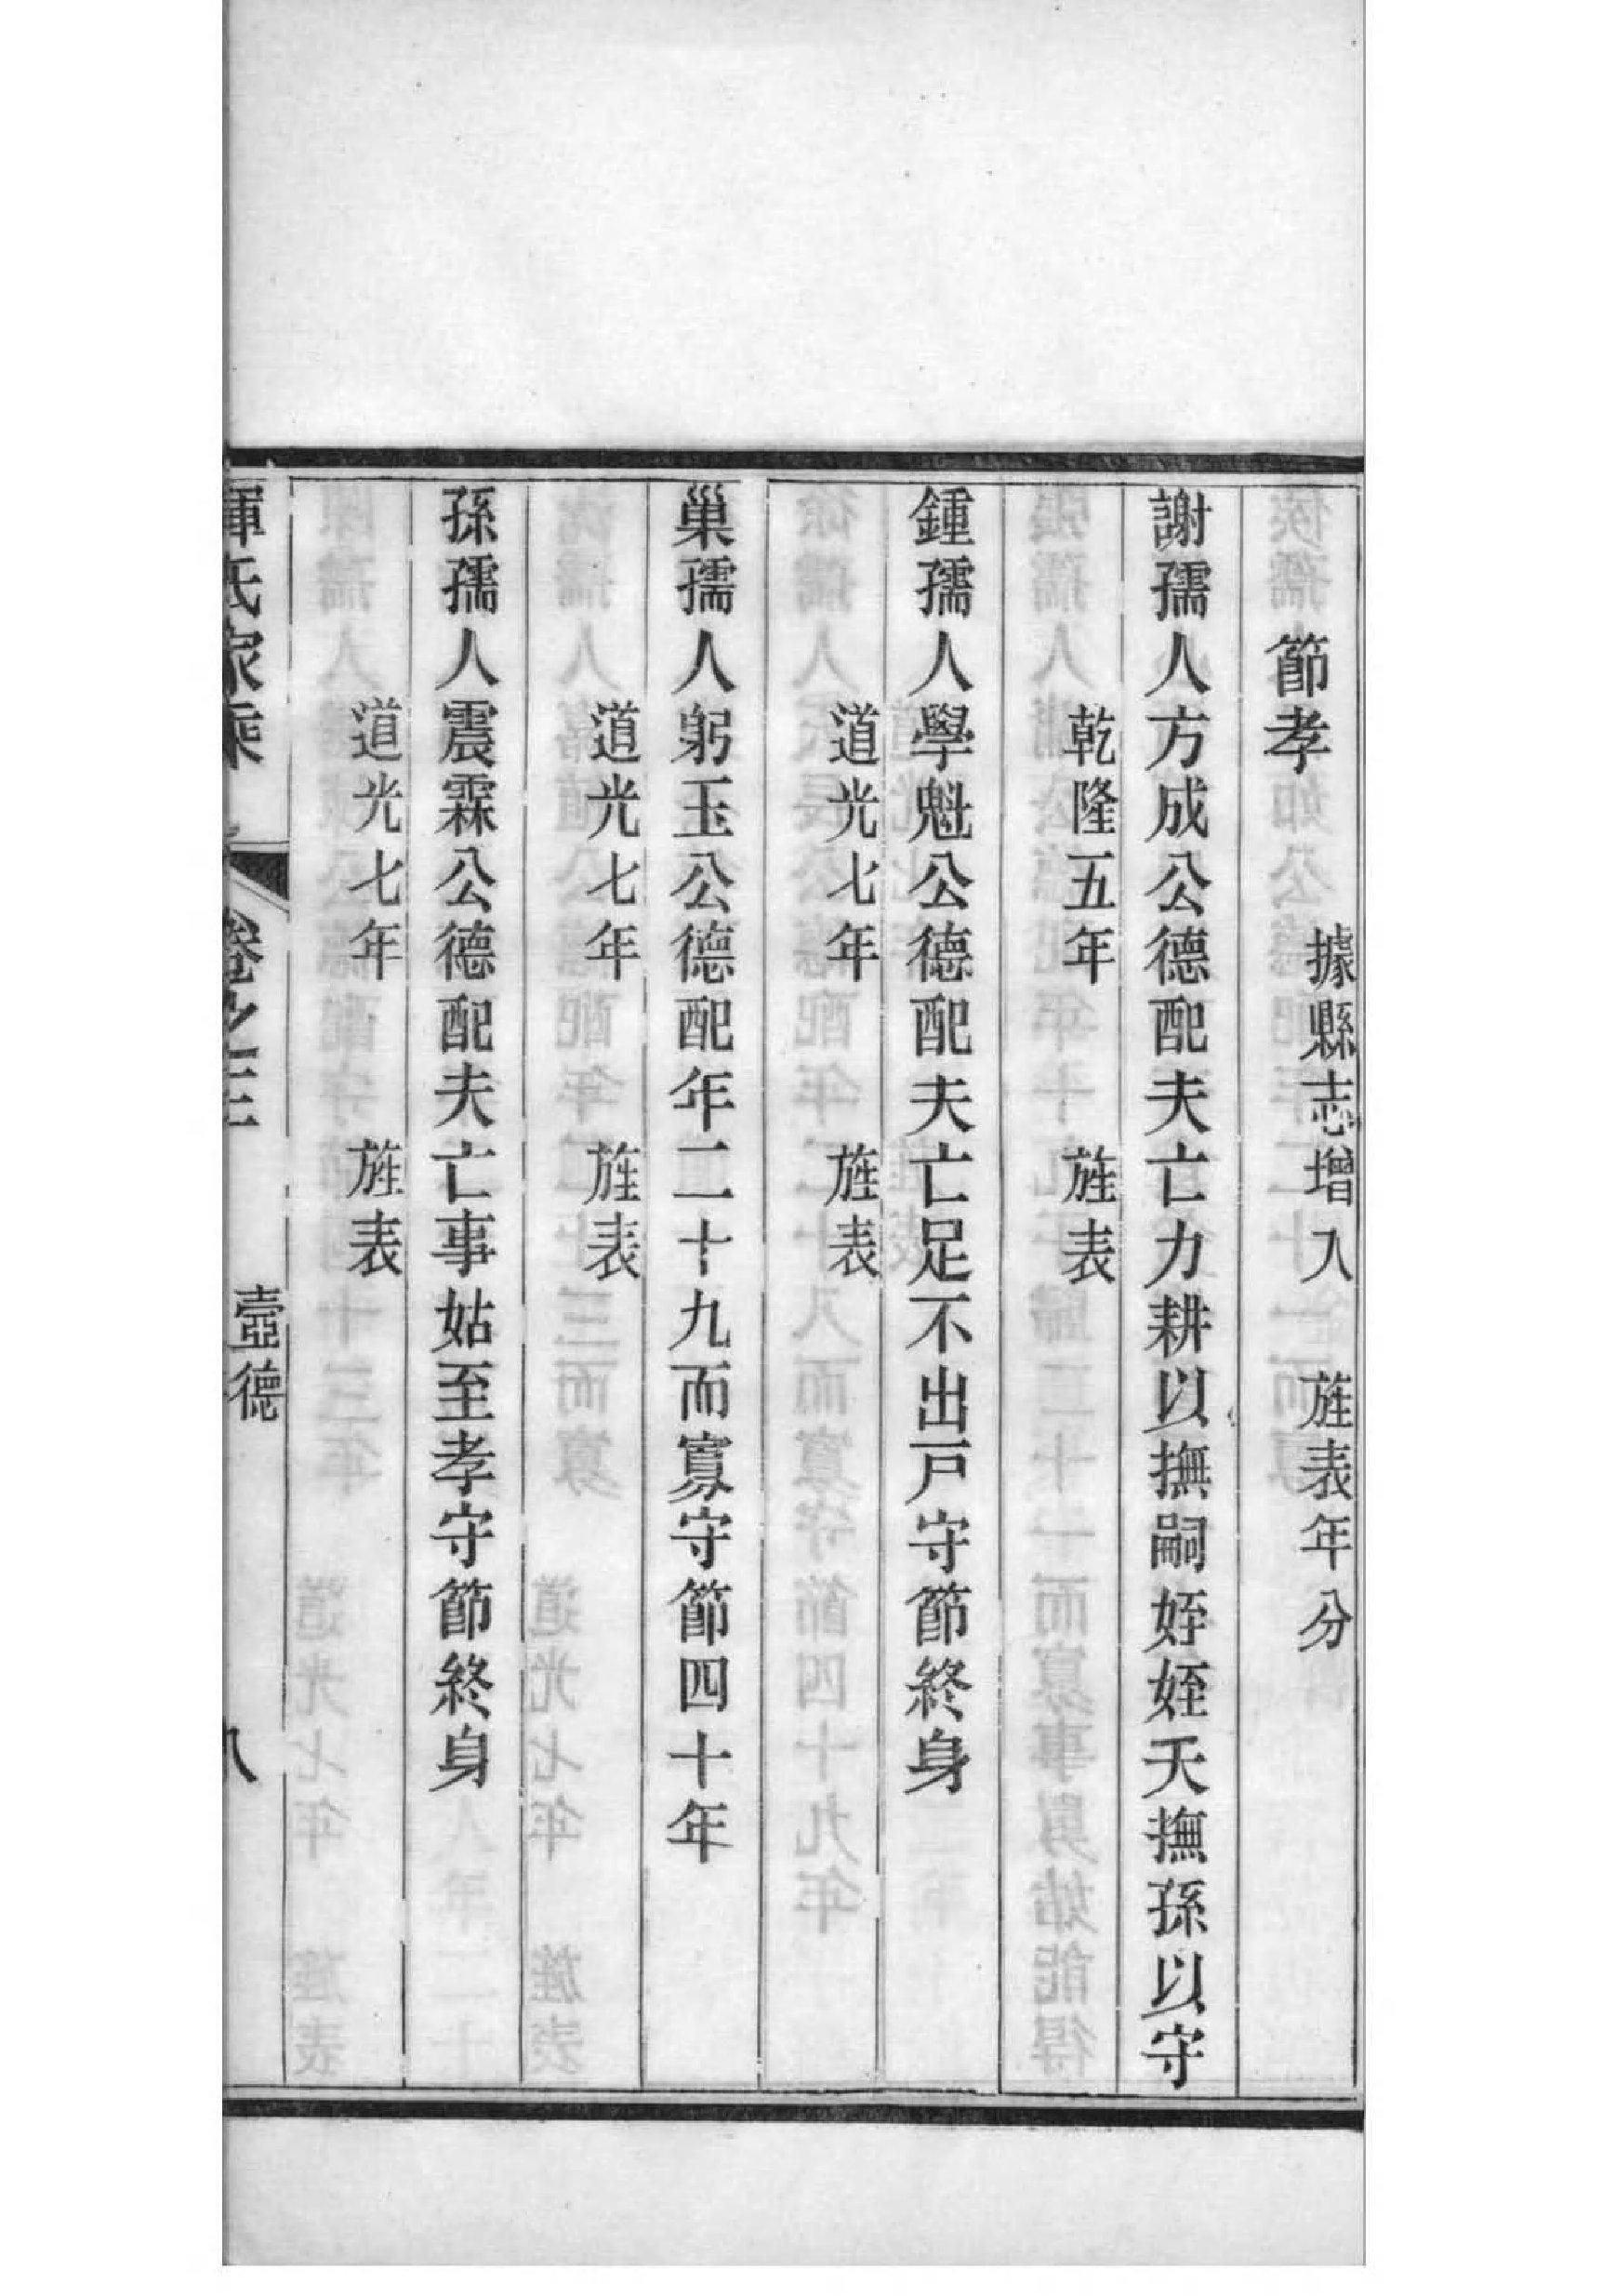 節孝 據縣志增入 旌表年分
謝孺人方成公德配夫亡力耕以撫嗣姪姪夭撫孫以守
乾隆五年 旌表
鍾孺人學魁公德配夫亡足不出戸守節終身
道光七年 旌表
巢孺人躬玉公德配年二十九而寡守節四十年
道光七年 旌表
孫孺人震霖公德配夫亡事姑至孝守節終身
道光七年 旌表
惲氏家乘 卷之三 壼德